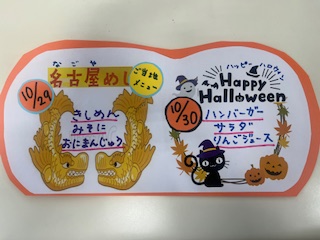 なごや
名古屋めし
ご当地
メニュー
10/29
きしめん
みそに
おにまんじゅう
ハッピー ハロウィン
Happy
Halloween
10/30
ハンバーガー
サラダ
りんごジュース